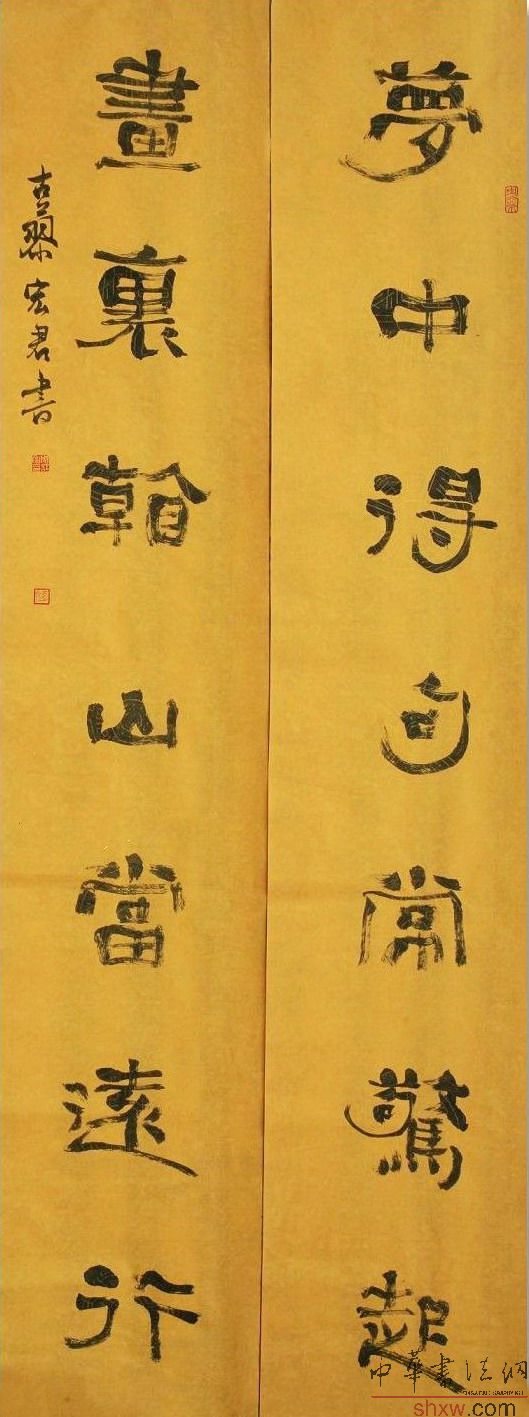 夢中得句常驚起
畫裏看山當遠行
古 宏君書
中華書法網
shxw.com